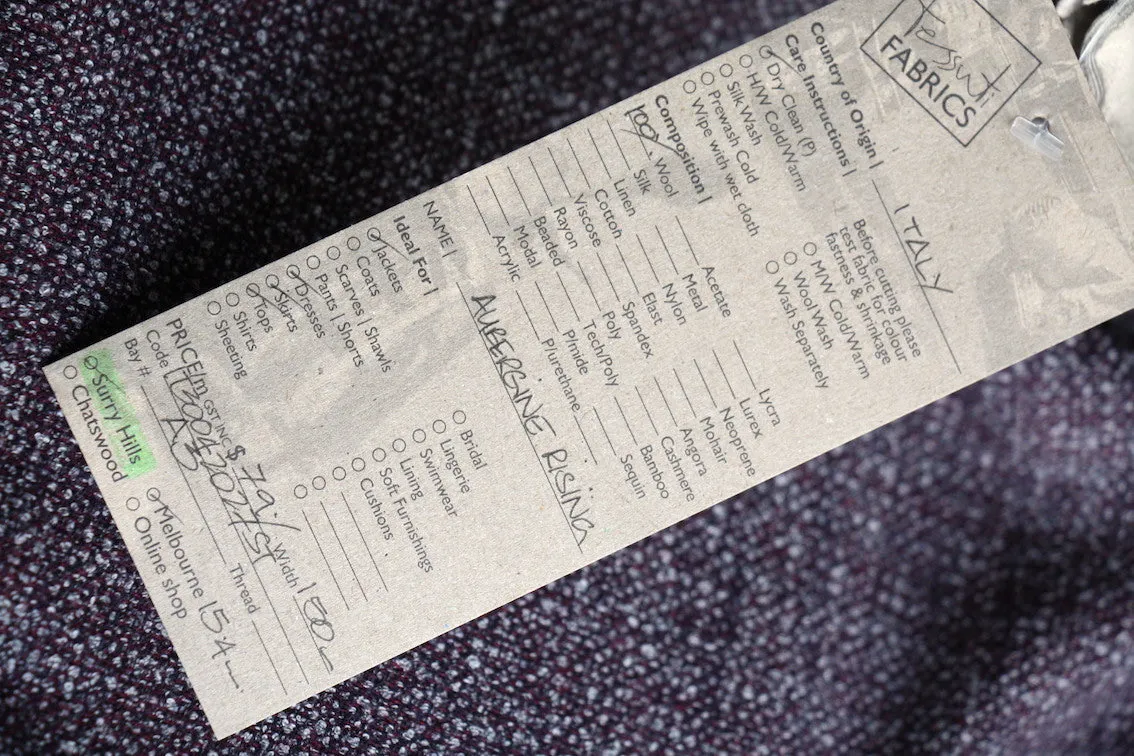 Tessuti
FABRICS
Country of Origin | ITALY
Care Instructions |
Dry Clean (P)
H/W Cold/Warm
Silk Wash
Prewash Cold
Wipe with wet cloth
Before cutting please
test fabric for colour
fastness & shrinkage
M/W Cold/Warm
Wool Wash
Wash Separately
Composition |
100% Wool
Silk
Linen
Cotton
Viscose
Rayon
Beaded
Modal
Acrylic
Acetate
Metal
Nylon
Elast
Spandex
Poly
Tech/Poly
P/mide
P/urethane
Lycra
Lurex
Neoprene
Mohair
Angora
Cashmere
Bamboo
Sequin
NAME | AUBERGINE RISING
Ideal For |
Jackets
Coats
Scarves | Shawls
Pants | Shorts
Dresses
Skirts
Tops
Shirts
Sheeting
Bridal
Lingerie
Swimwear
Lining
Soft Furnishings
Cushions
PRICE/m GST INC $79./ Width | 150
Code
Bay # A3 Thread
Surry Hills
Chatswood
Melbourne
Online shop